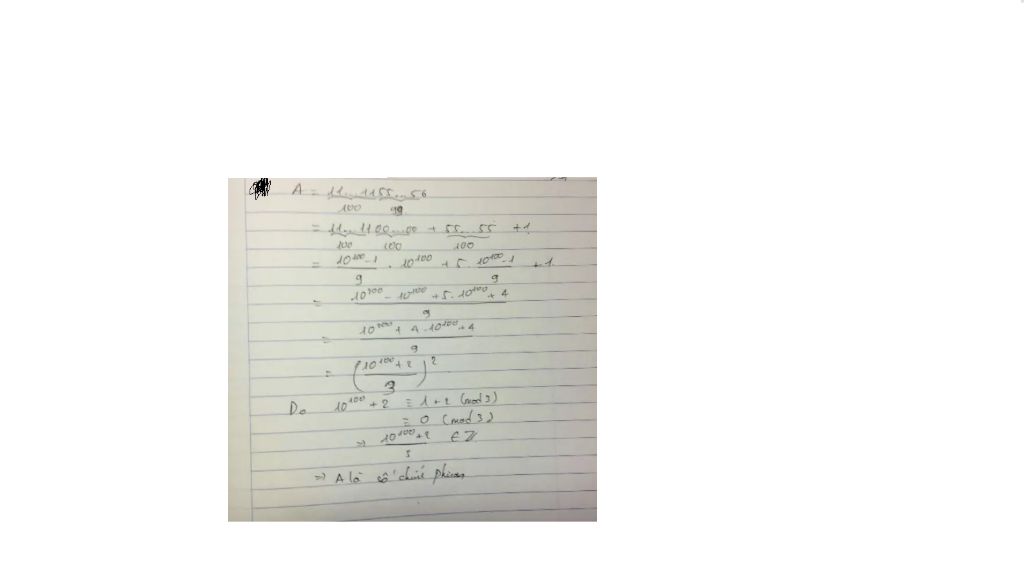 A = 11...1155...56
100 99
= 11...1100...00 + 55...55 + 1
100 100 100
= 10^100-1 / 9 . 10^100 + 5. 10^100-1 / 9 + 1
= 10^200 - 10^100 + 5.10^100 + 4 / 9
= 10^200 + 4.10^100 + 4 / 9
= (10^100 + 2 / 3)^2
Do 10^100 + 2 ≡ 1 + 2 (mod 3)
≡ 0 (mod 3)
⇒ 10^100 + 2 / 3 ∈ Z
⇒ A là số chính phương